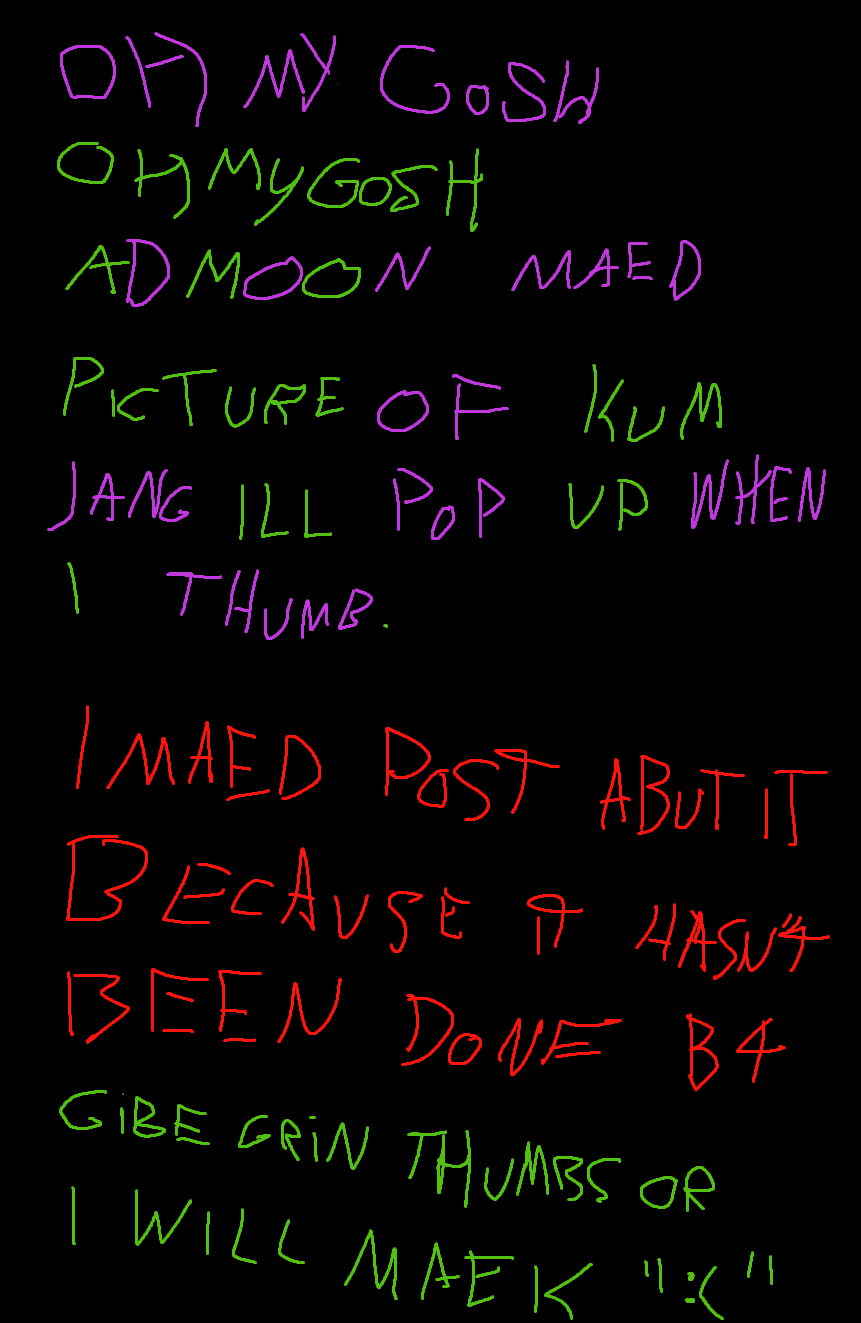 OH MY GOSH
OH MY GOSH
ADMOON MAED
PICTURE OF KUM
JANG ILL POP UP WHEN
I THUMB.
I MAED POST ABUT IT
BECAUSE IT HASN"T
BEEN DONE B4
GIBE GRIN THUMBS OR
I WILL MAEK ":("